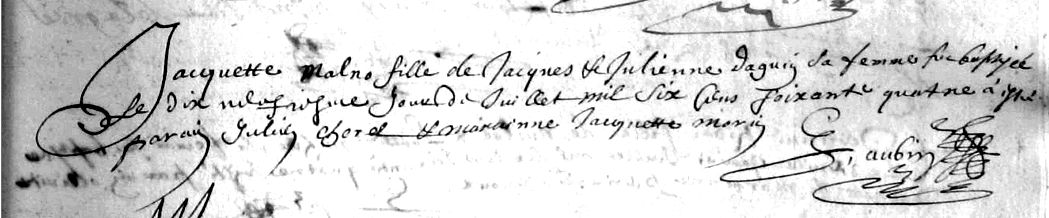 Jacquette Malno fille de Jacques & Julienne daguin sa femme fut baptizée
le dix neufiesme Jour de Juillet mil six cens soixante quatre à
parain Julien & maraine Jacquette morin
G, aubin